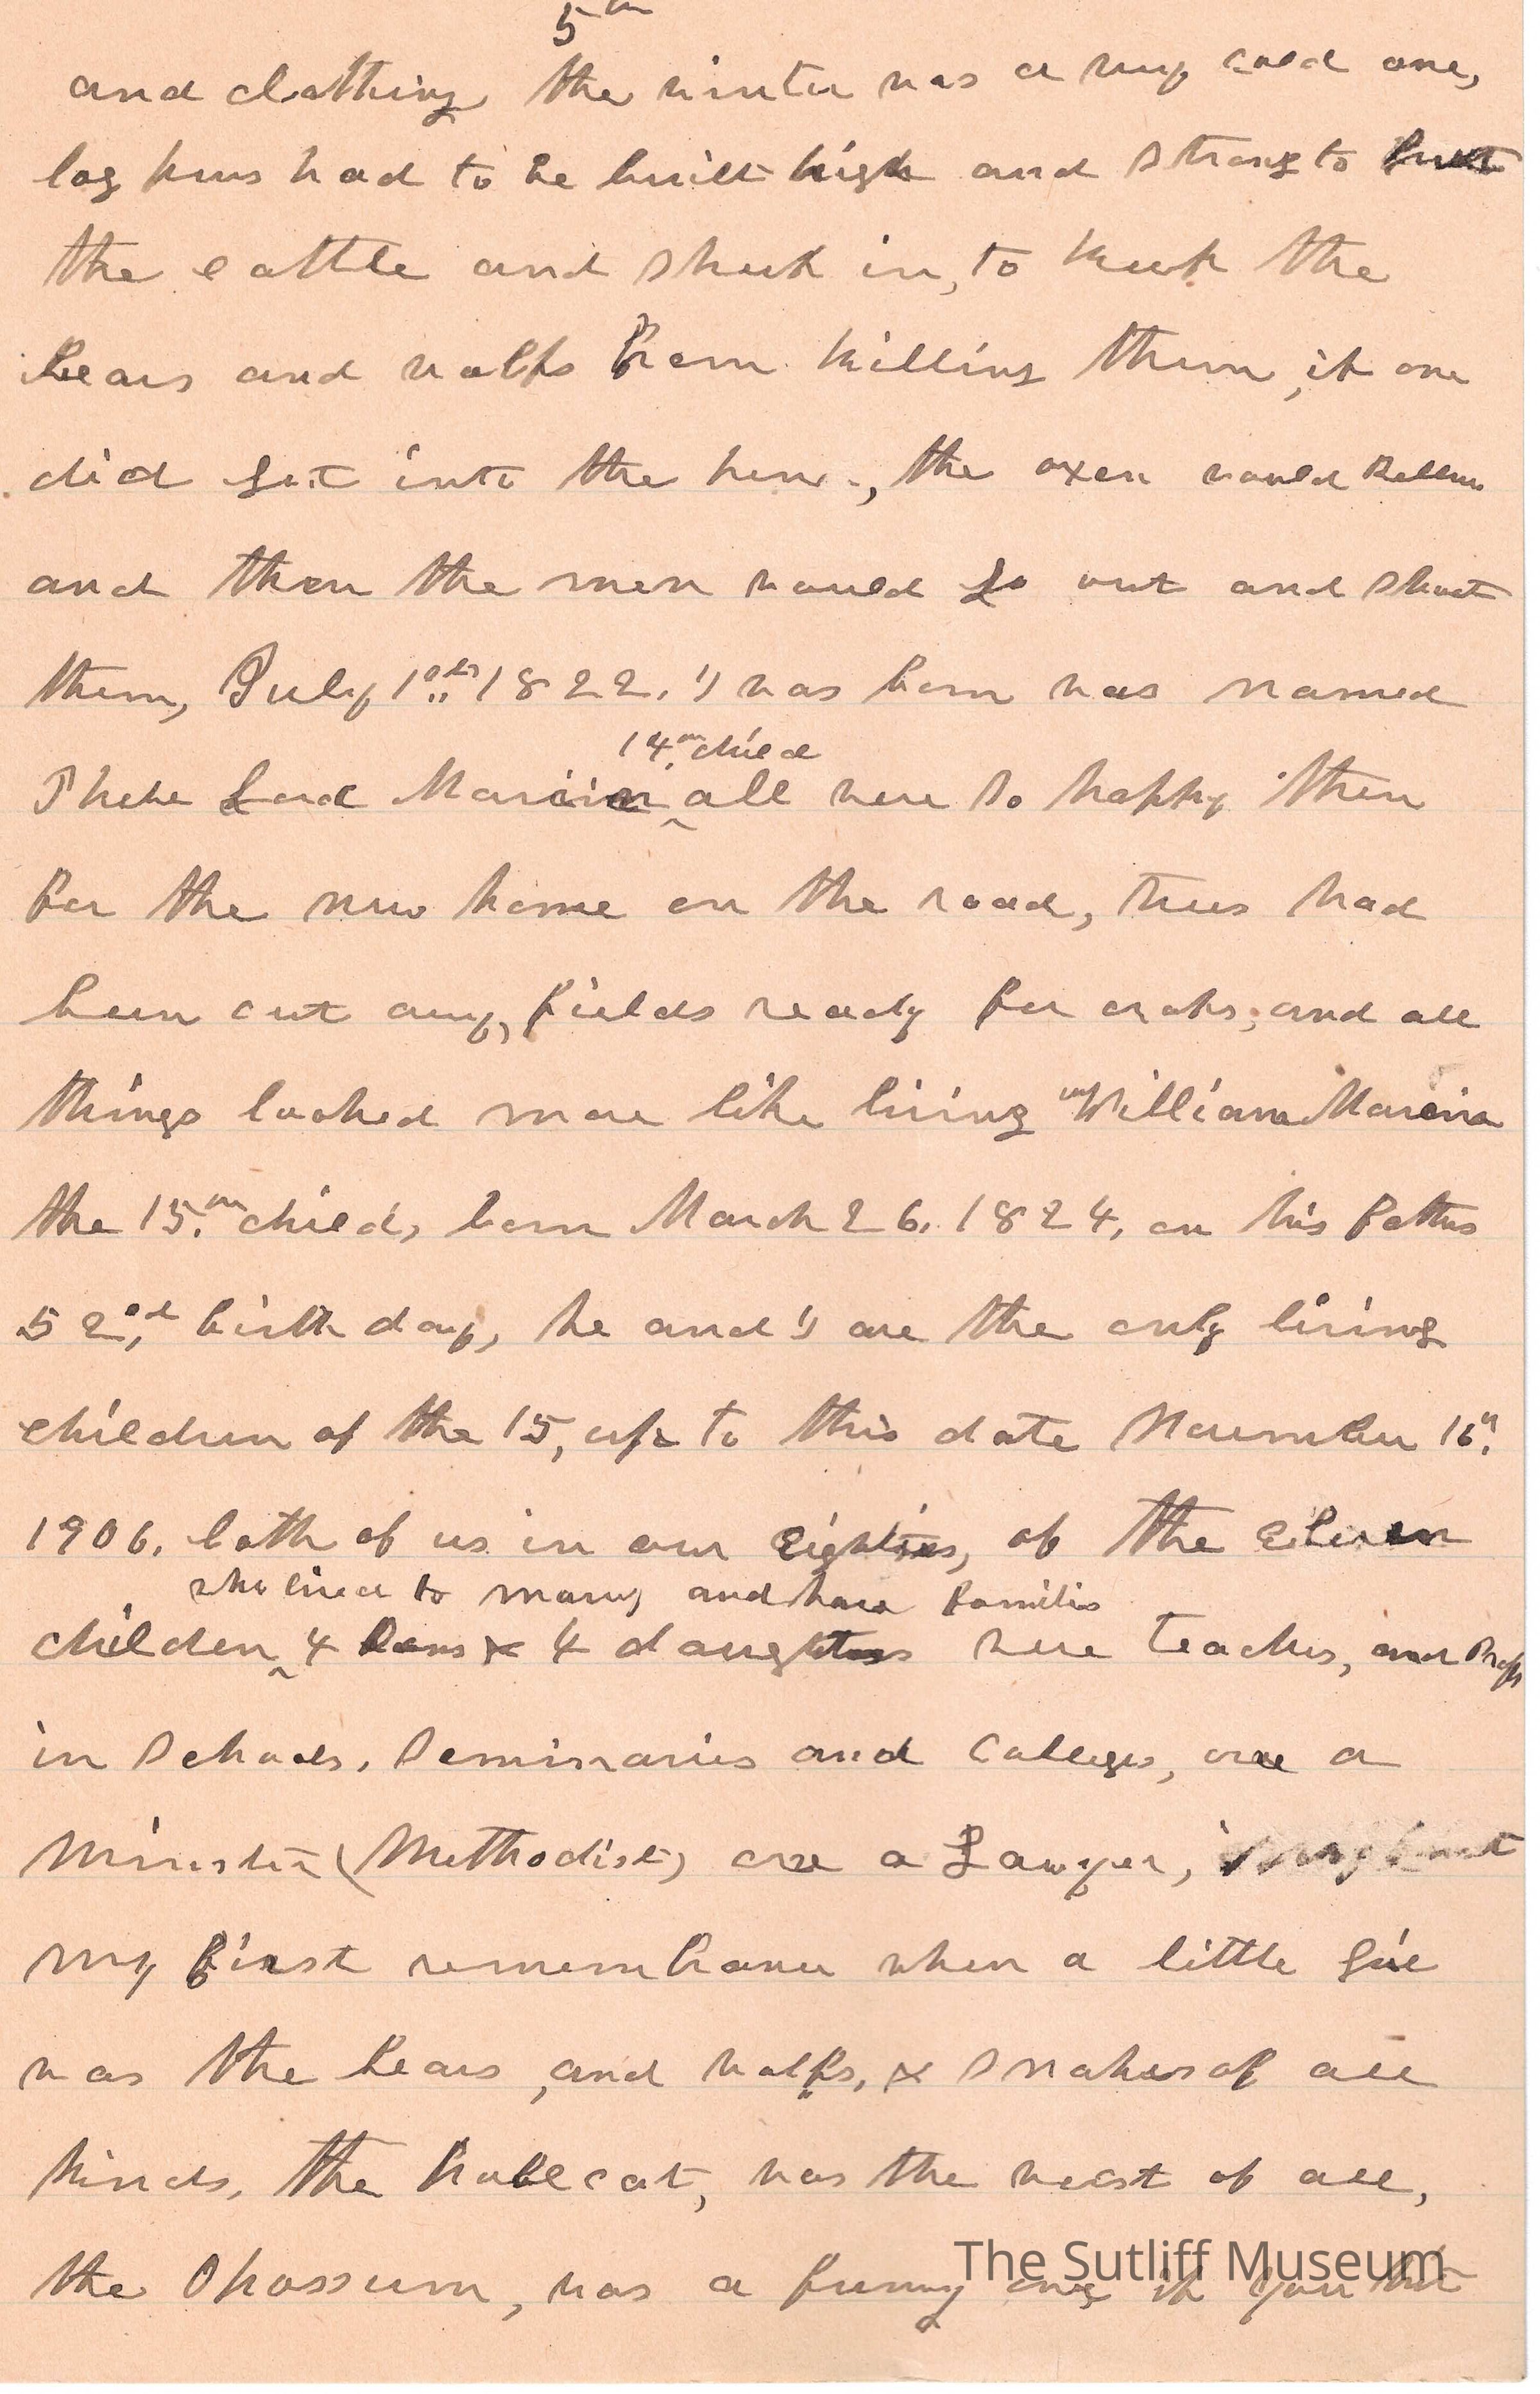 5th
and clothing, the winter was a very cold one,
log pens had to be built high and strong to
the cattle and sheep in, to keep the
Bears and wolfs from killing them, if one
did get into the pen, the oxen would Bellow
and then the men would go out and shoot
them, July 10th 1822. I was born was named
14th child
Phebe Lord Marvin, all were so happy then
for the new home on the road, trees had
been cut away, fields ready for crops, and all
things looked more like living William Marvin
the 15th child, born March 26. 1824, on his fathers
52nd birth day, he and I are the only living
children of the 15, up to this date November 16th
1906. both of us in our Eighties, of the Eleven
who lived to marry and have families
children 4 sons & 4 daughters were teachers, and Profs
in Schools, Seminaries and Colleges, one a
Minister (Methodist) one a Lawyer,
my first remembrance when a little girl
was the Bears, and wolfs, & snakes of all
kinds, the Pollecat, was the worst of all,
the Opossum, was a funny one, if you hit
The Sutliff Museum